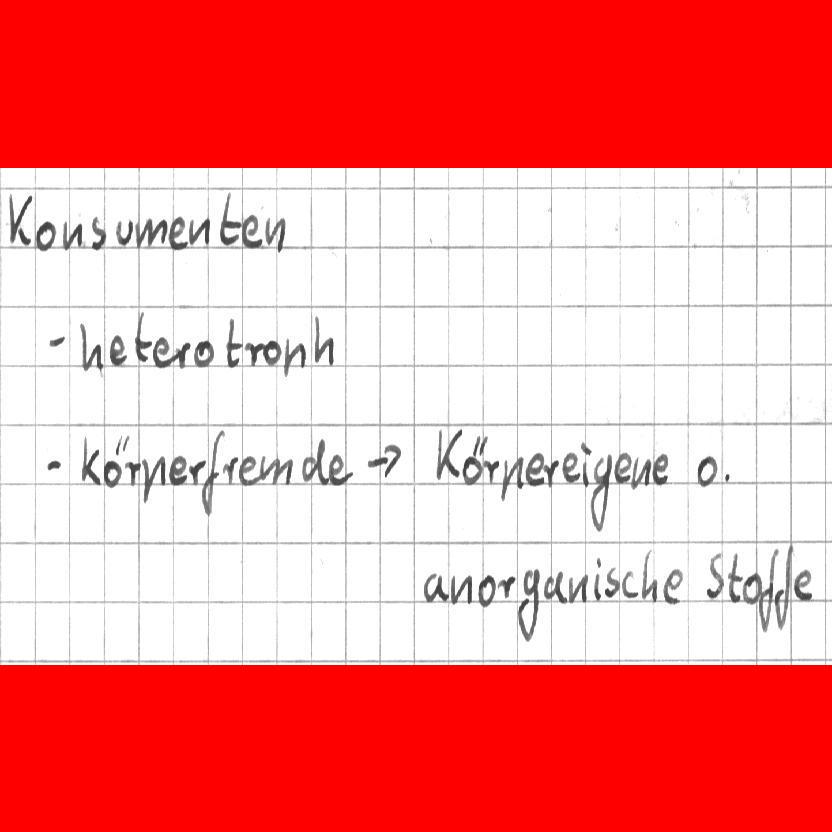 Konsumenten
- heterotroph
- Körperfremde → Körpereigene o.
anorganische Stoffe